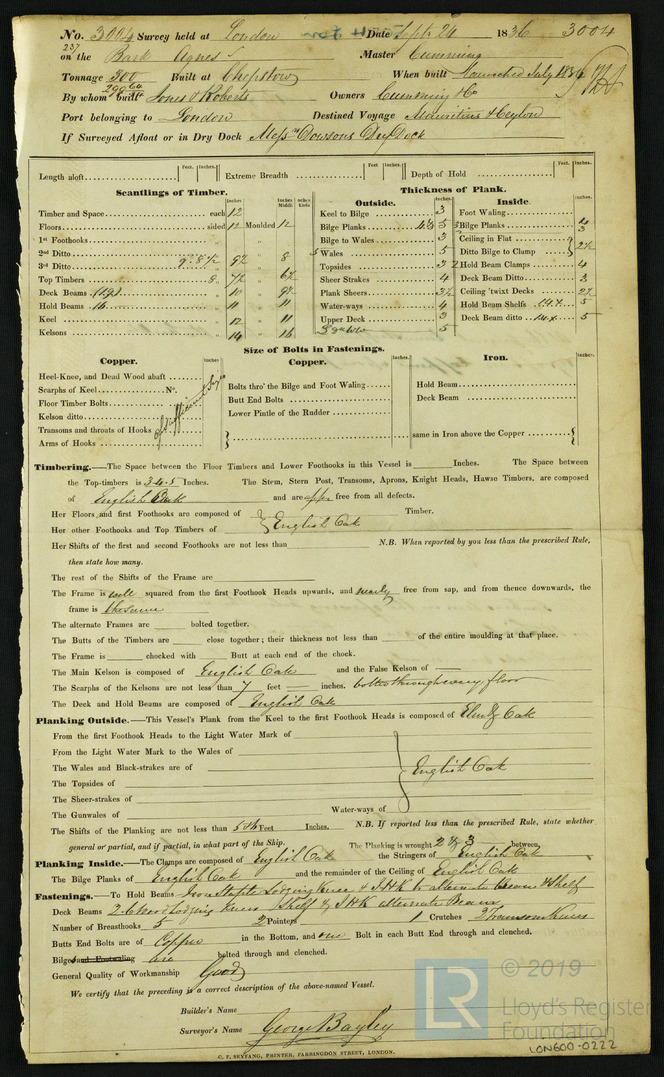 No. 3004 Survey held at London Date Sept. 26 1836 3004
237
on the Bark Agnes Master Cumming
Tonnage 300 Built at Chepstow When built Launched July 1836
290 64
By whom built Jones & Roberts Owners Cumming & Co
Port belonging to London Destined Voyage Mauritius & Ceylon
If Surveyed Afloat or in Dry Dock Messrs Dowsons Dry Dock
Length aloft Feet. Inches. Extreme Breadth Feet. Inches. Depth of Hold Feet. Inches.
Scantlings of Timber.
Inches Inches Middl. Inches Ends
Timber and Space each 12
Floors sided 12 Moulded 12
1st Foothooks
2nd Ditto 9 1/2 8
3rd Ditto
Top Timbers 8
Deck Beams (19) 9 1/2
Hold Beams 16 11 11
Keel 12 11
Kelsons 14 16
Thickness of Plank.
Outside. Inches
Keel to Bilge 3
Bilge Planks 5
Bilge to Wales 3
Wales 5
Topsides
Sheer Strakes 4
Plank Sheers 3 1/2
Water-ways 4
Upper Deck 3
5
Inside. Inches
Foot Waling
Bilge Planks
Ceiling in Flat
Ditto Bilge to Clamp 2 1/2
Hold Beam Clamps 4
Deck Beam Ditto 3
Ceiling 'twixt Decks 2 1/2
Hold Beam Shelfs 5
Deck Beam ditto 5
Size of Bolts in Fastenings.
Copper. Inches
Heel-Knee, and Dead Wood abaft
Scarphs of Keel No.
Floor Timber Bolts
Kelson ditto
Transoms and throats of Hooks
Arms of Hooks
of sufficient size
Copper. Inches
Bolts thro' the Bilge and Foot Waling
Butt End Bolts
Lower Pintle of the Rudder
Iron. Inches
Hold Beam
Deck Beam
same in Iron above the Copper
Timbering.—The Space between the Floor Timbers and Lower Foothooks in this Vessel is Inches. The Space between
the Top-timbers is 3.4.5 Inches. The Stem, Stern Post, Transoms, Aprons, Knight Heads, Hawse Timbers, are composed
of English Oak and are appr free from all defects.
Her Floors and first Foothooks are composed of Timber.
Her other Foothooks and Top Timbers of English Oak
Her Shifts of the first and second Foothooks are not less than N.B. When reported by you less than the prescribed Rule,
then state how many.
The rest of the Shifts of the Frame are
The Frame is well squared from the first Foothook Heads upwards, and nearly free from sap, and from thence downwards, the
frame is the same
The alternate Frames are bolted together.
The Butts of the Timbers are close together; their thickness not less than of the entire moulding at that place.
The Frame is chocked with Butt at each end of the chock.
The Main Kelson is composed of English Oak and the False Kelson of
The Scarphs of the Kelsons are not less than 7 feet inches. bolted through every floor
The Deck and Hold Beams are composed of English Oak
Planking Outside.—This Vessel's Plank from the Keel to the first Foothook Heads is composed of Elm & Oak
From the first Foothook Heads to the Light Water Mark of
From the Light Water Mark to the Wales of
The Wales and Black-strakes are of English Oak
The Topsides of
The Sheer-strakes of
The Gunwales of Water-ways of
The Shifts of the Planking are not less than 5 ft Feet Inches. N.B. If reported less than the prescribed Rule, state whether
general or partial, and if partial, in what part of the Ship. The Planking is wrought 2 & 3 between,
Planking Inside.—The Clamps are composed of English Oak the Stringers of English Oak
The Bilge Planks of English Oak and the remainder of the Ceiling of English Oak
Fastenings.—To Hold Beams Iron Staple Lodging knees & I.H.K to alternate beams & Shelf
Deck Beams 2 Wood Lodging Knees Shelf & I.H.K alternate Beams
Number of Breasthooks 5 2 Pointers 1 Crutches 3 Transom Knees
Butts End Bolts are of Copper in the Bottom, and one Bolt in each Butt End through and clenched.
Bilges and Footwaling are bolted through and clenched.
General Quality of Workmanship Good
We certify that the preceding is a correct description of the above-named Vessel.
Builder's Name
Surveyor's Name George Bayley
C. F. SEYFANG, PRINTER, FARRINGDON STREET, LONDON.
LR © 2019
Lloyd's Register
Foundation
LON600-0222